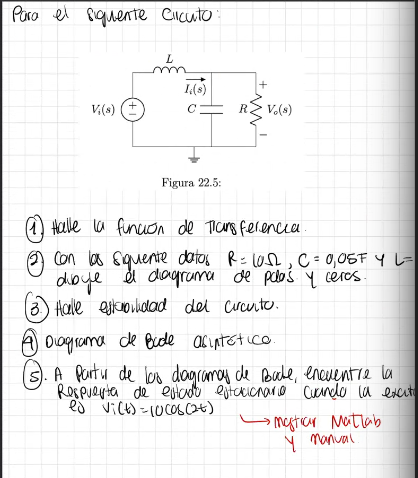 Para el siguiente Circuito:
L
I_i(s)
+
V_i(s)
+
−
C
R
V_o(s)
−
Figura 22.5:
① Halle la función de Transferencia.
② Con los siguiente datos R = 10Ω, C = 0,05F y L=
dibuje el diagrama de polos y ceros.
③ Halle estabilidad del circuito.
④ Diagrama de Bode asintótico.
⑤. A Partir de los diagramas de Bode, encuentre la
Respuesta de estado estacionario Cuando la
es Vi(t) = 10cos(2t)
→ mostrar Matlab
y manual